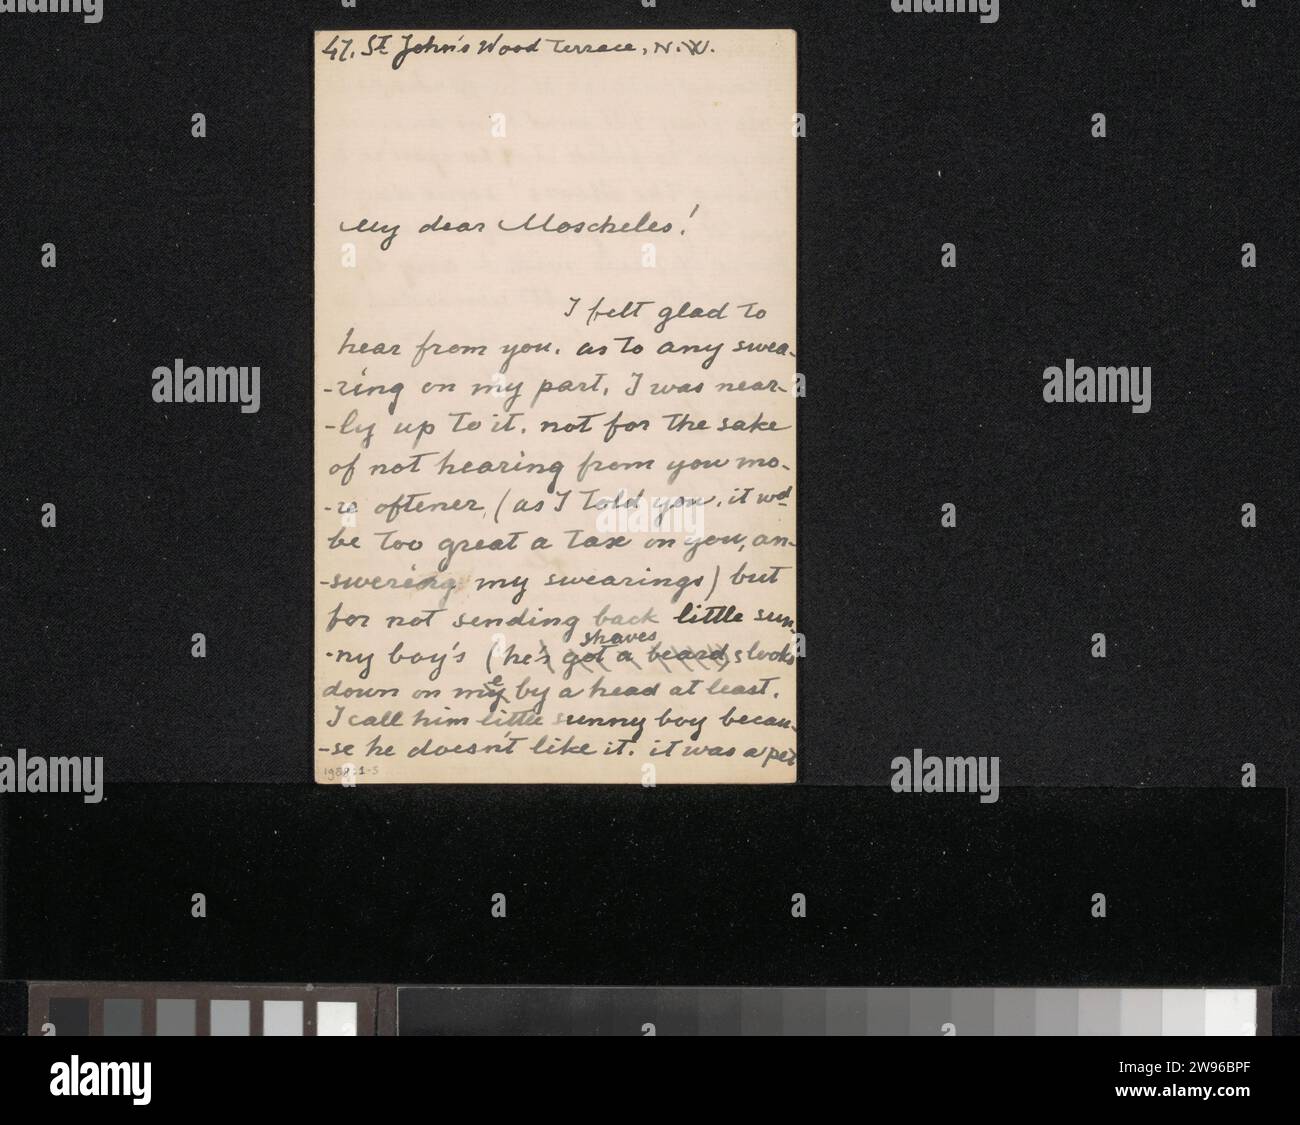 47, St John's Wood Terrace, N.W.
My dear Moscheles!
I felt glad to
hear from you. as to any swea-
-ring on my part, I was near-
-ly up to it. not for the sake
of not hearing from you mo-
-re oftener, (as I told you, it wd
be too great a tax on you, an-
-swering my swearings) but
for not sending back little sun-
-ny boy's (he's got a beard, shaves looks
down on me by a head at least.
I call him little sunny boy becau-
-se he doesn't like it. it was a pet
1988:1-5
alamy
alamy
alamy
alamy
alamy
alamy
alamy
2W96BPF